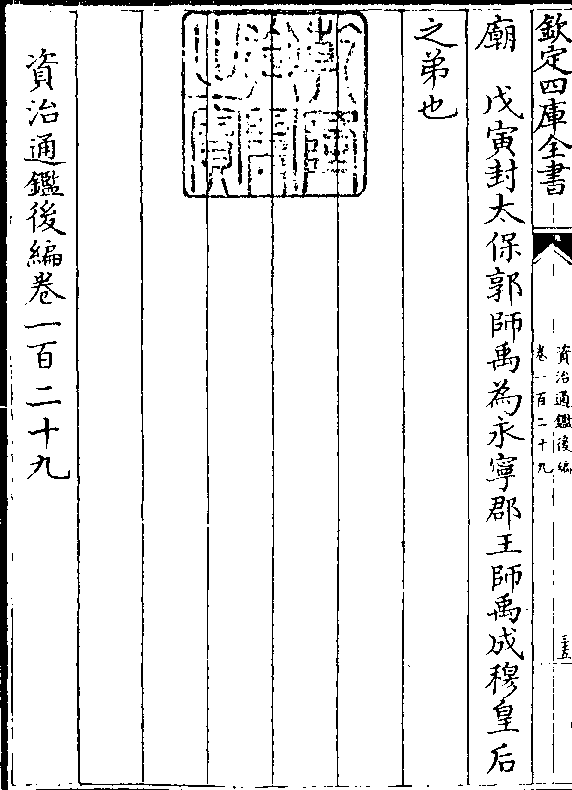 欽定四庫全書
資治通鑑後編
卷一百二十九
廟　戊寅封太保郭師禹為永寧郡王師禹成穆皇后
之弟也
資治通鑑後編卷一百二十九